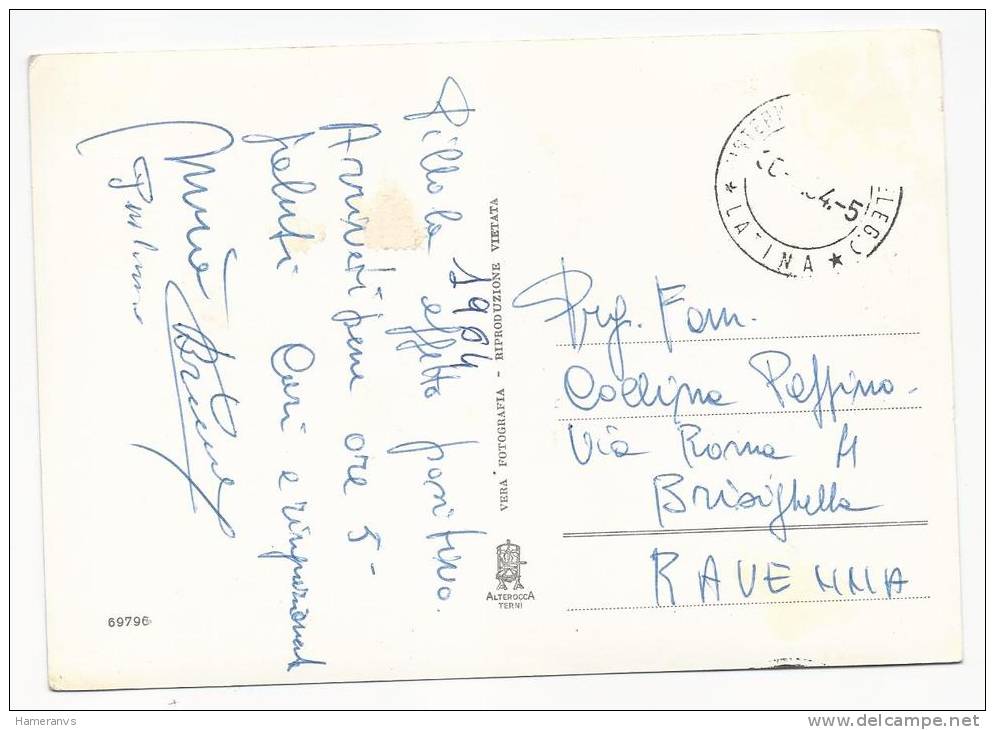 Pillola effetto positivo.
1964
Arriveti bene ore 5-
saluti Cari e ringraziamenti
VERA FOTOGRAFIA - RIPRODUZIONE VIETATA
ALTEROCCA
TERNI
69796
LATINA
4.-5
Prg. Fam.
Collina Peppino.
Via Roma 11
Brisighella
RAVENNA
Hameranvs
www.delcampe.net